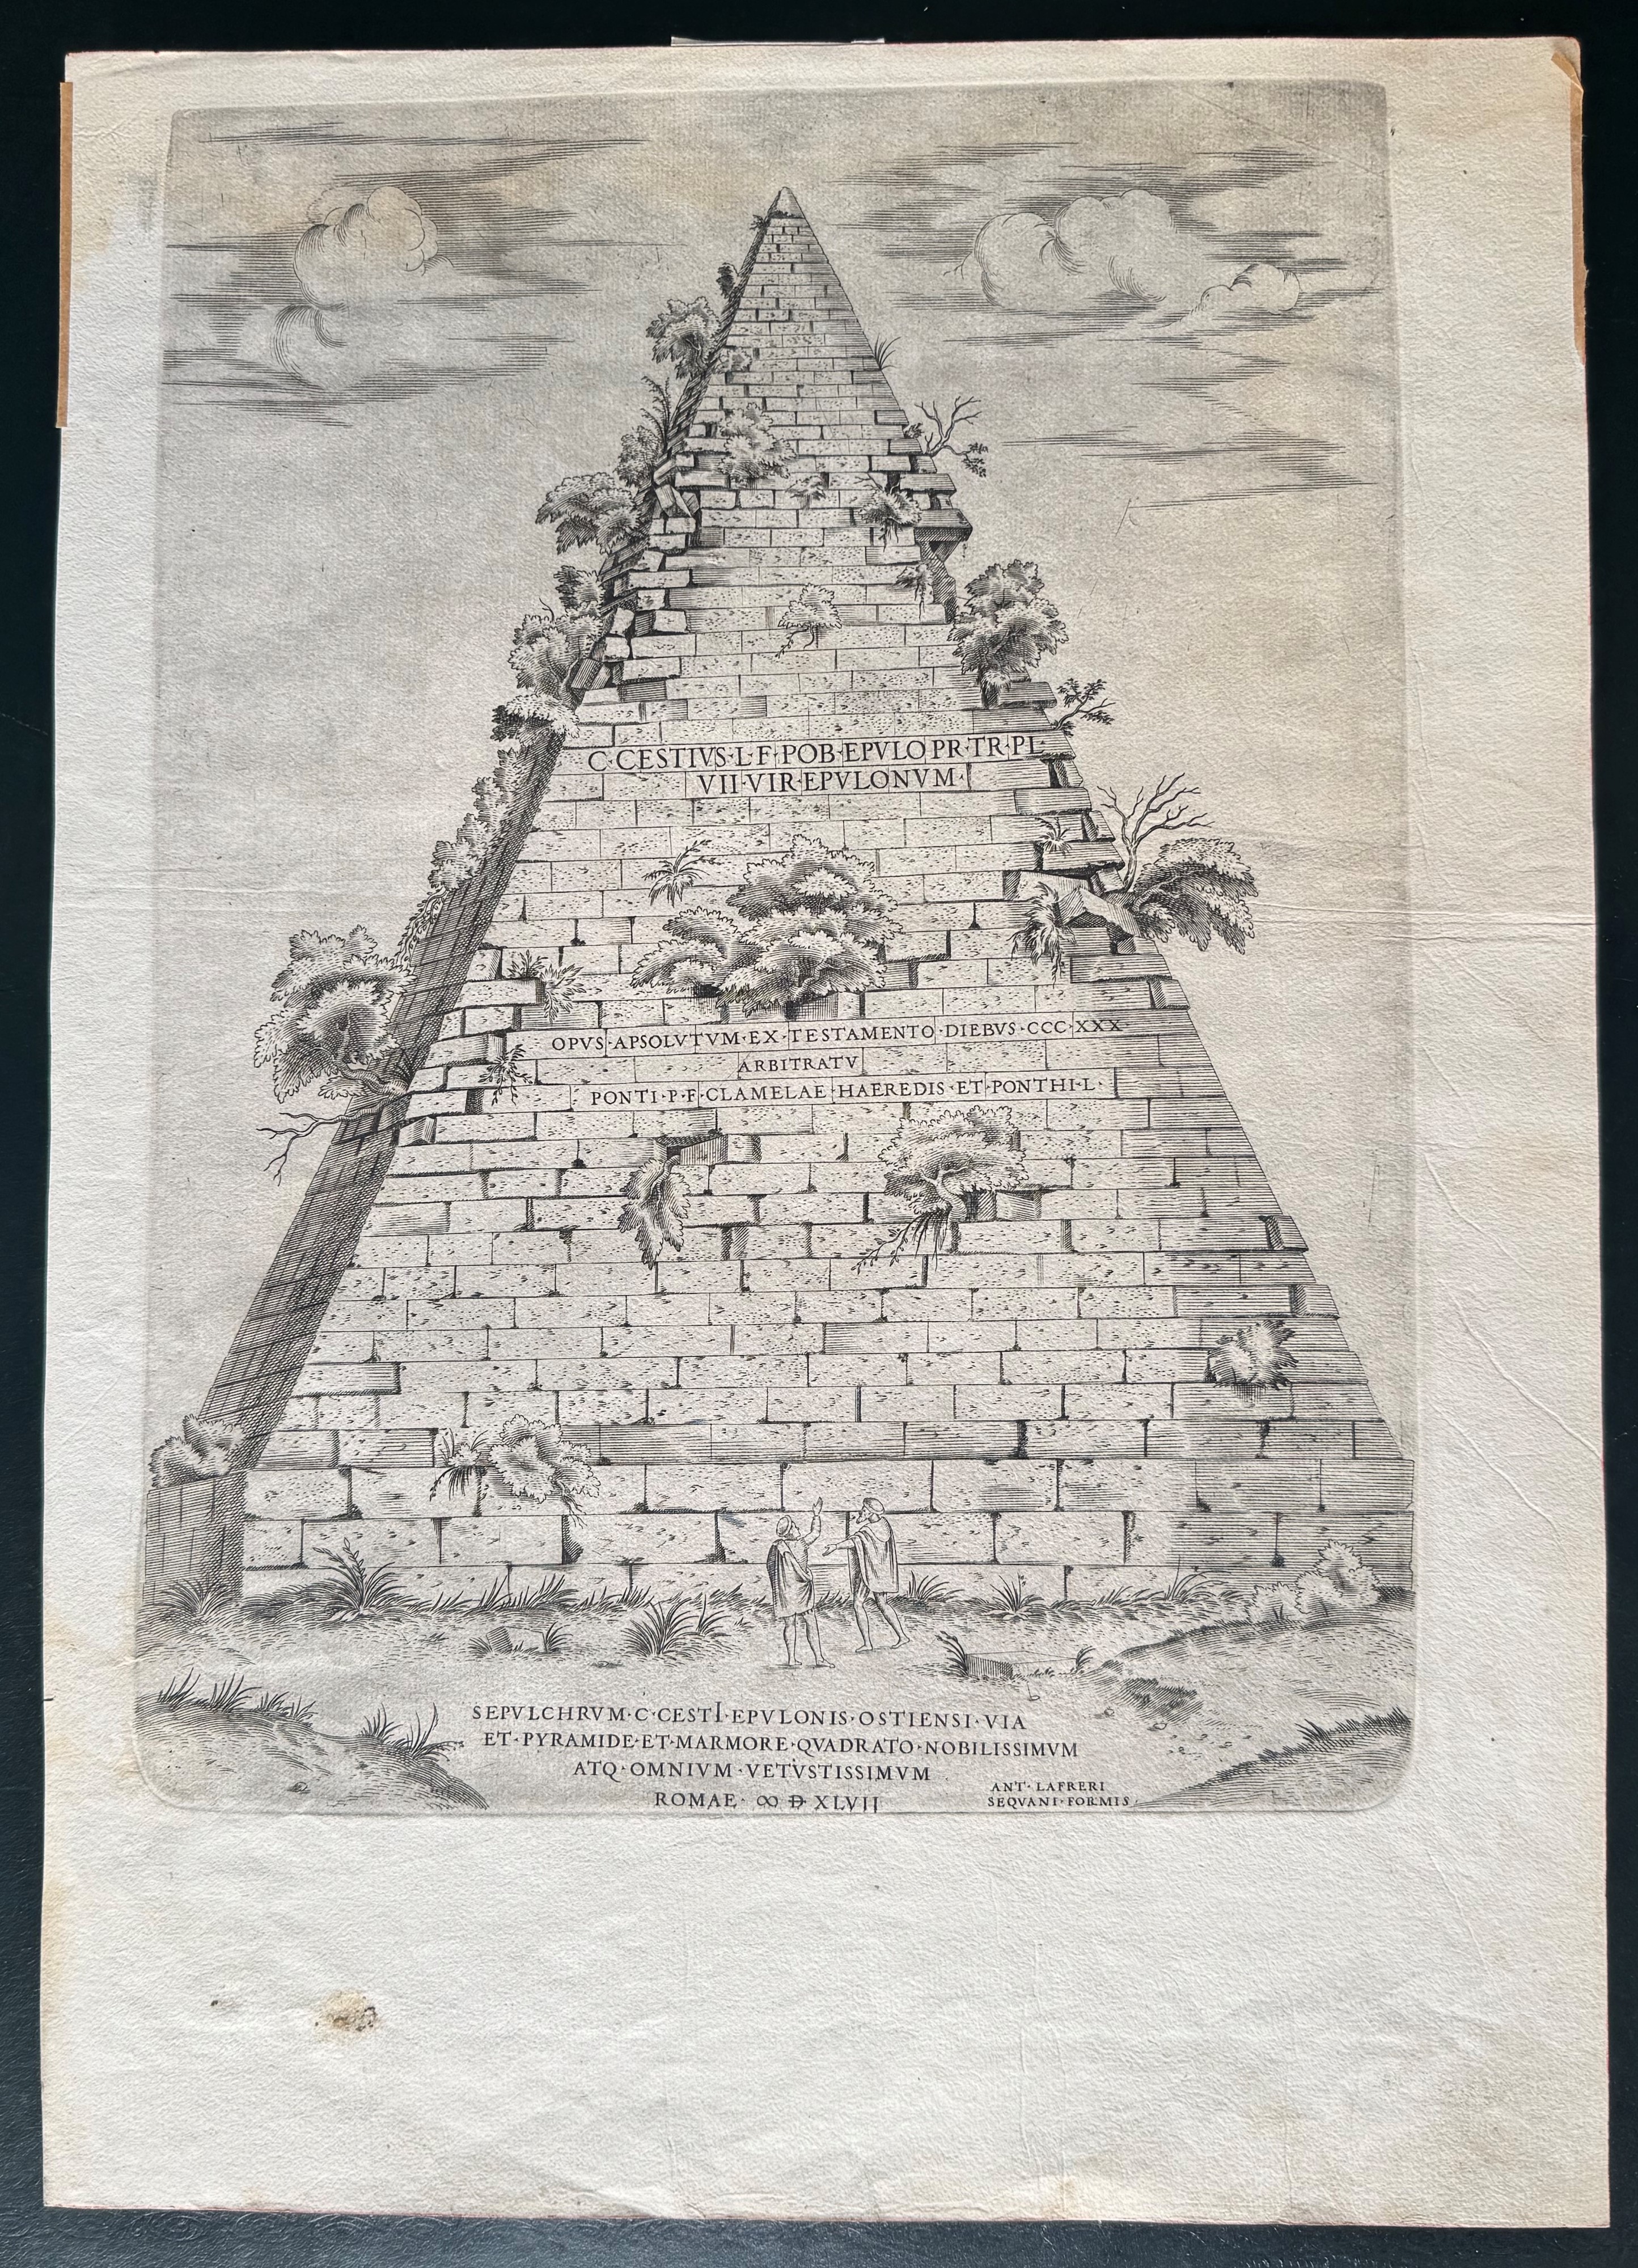 C·CESTIVS·L·F·POB·EPVLO PR·TR·PL·
VII·VIR·EPVLONVM·
OPVS·APSOLVTVM·EX·TESTAMENTO·DIEBVS·CCC·XXX
ARBITRATV
PONTI·P·F·CLAMELAE HAEREDIS·ET·PONTHI·L·
SEPVLCHRVM·C·CESTI·EPVLONIS·OSTIENSI·VIA
ET·PYRAMIDE·ET·MARMORE·QVADRATO·NOBILISSIMVM
ATQ·OMNIVM·VETVSTISSIMVM
ROMAE· ∞ D XLVII
ANT· LAFRERI
SEQVANI·FORMIS·